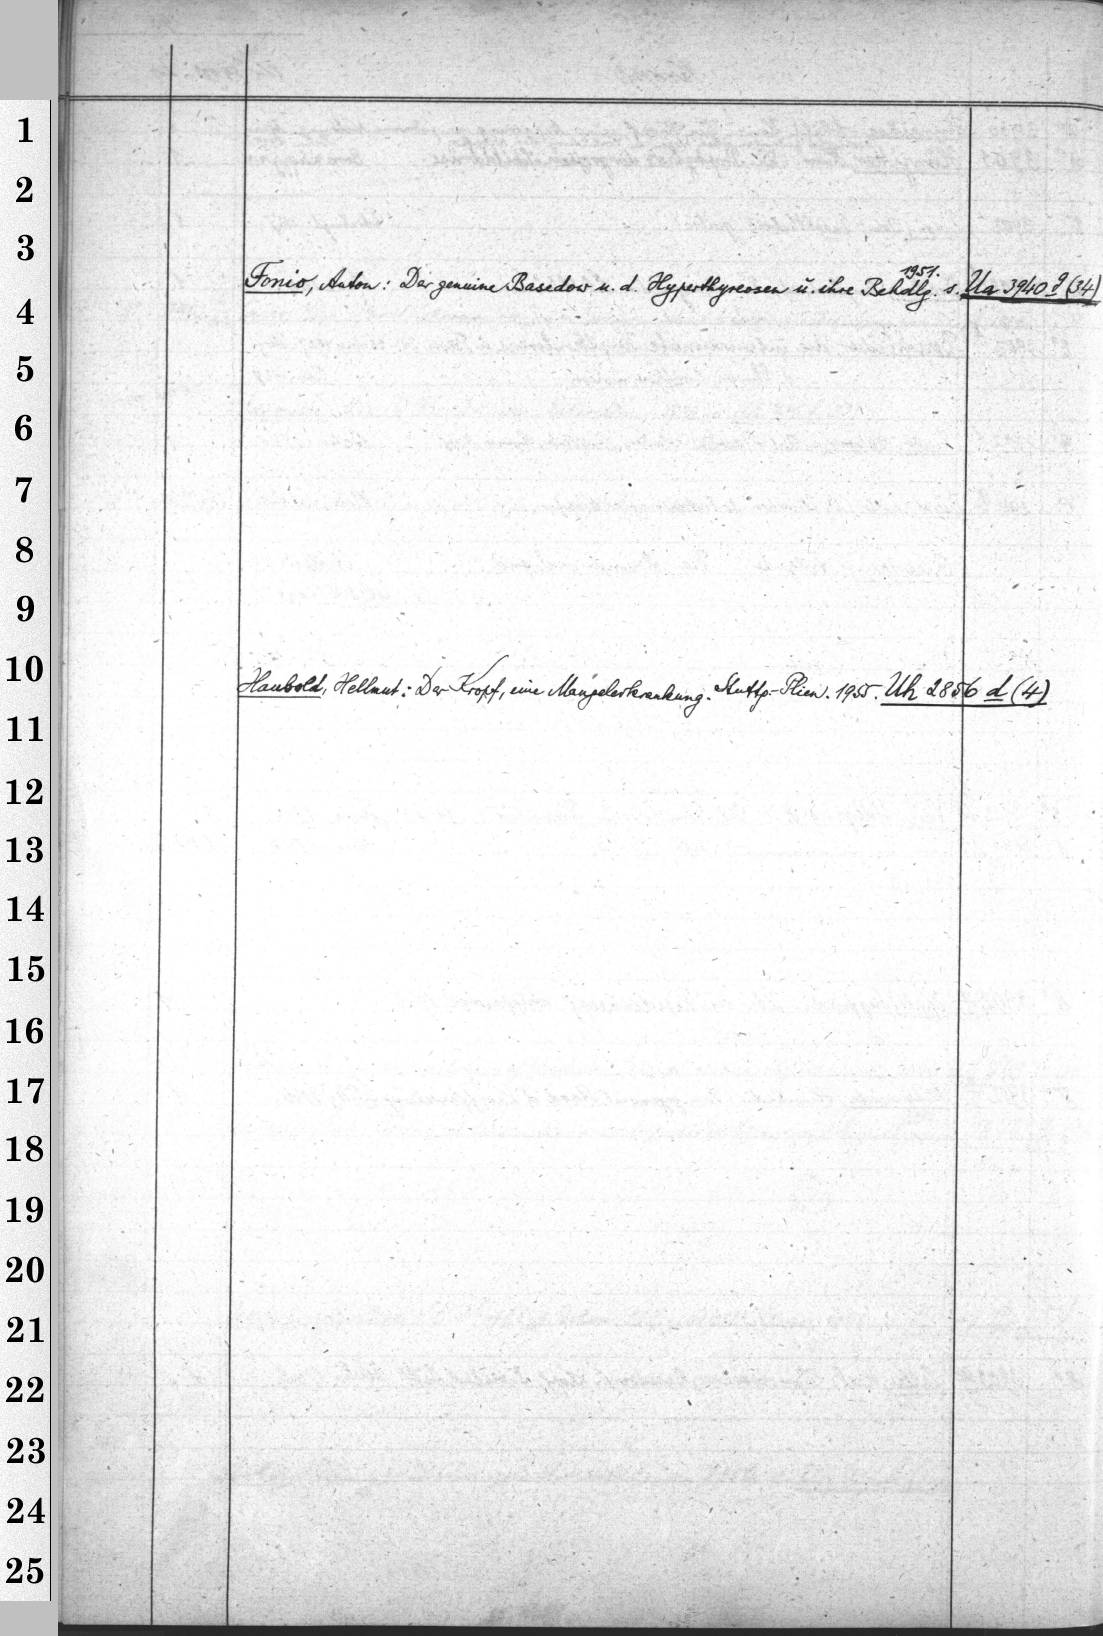 1
2
3
1951.
Fonio, Anton: Der genuine Basedow u. d. Hyperthyreosen u. ihre Behdlg. s. Ua 3940 g (34)
4
5
6
7
8
9
10
Haubold, Hellmut: Der Kropf, eine Mangelerkrankung. Stuttg.-Plien. 1955. Uh 2856 d (4)
11
12
13
14
15
16
17
18
19
20
21
22
23
24
25